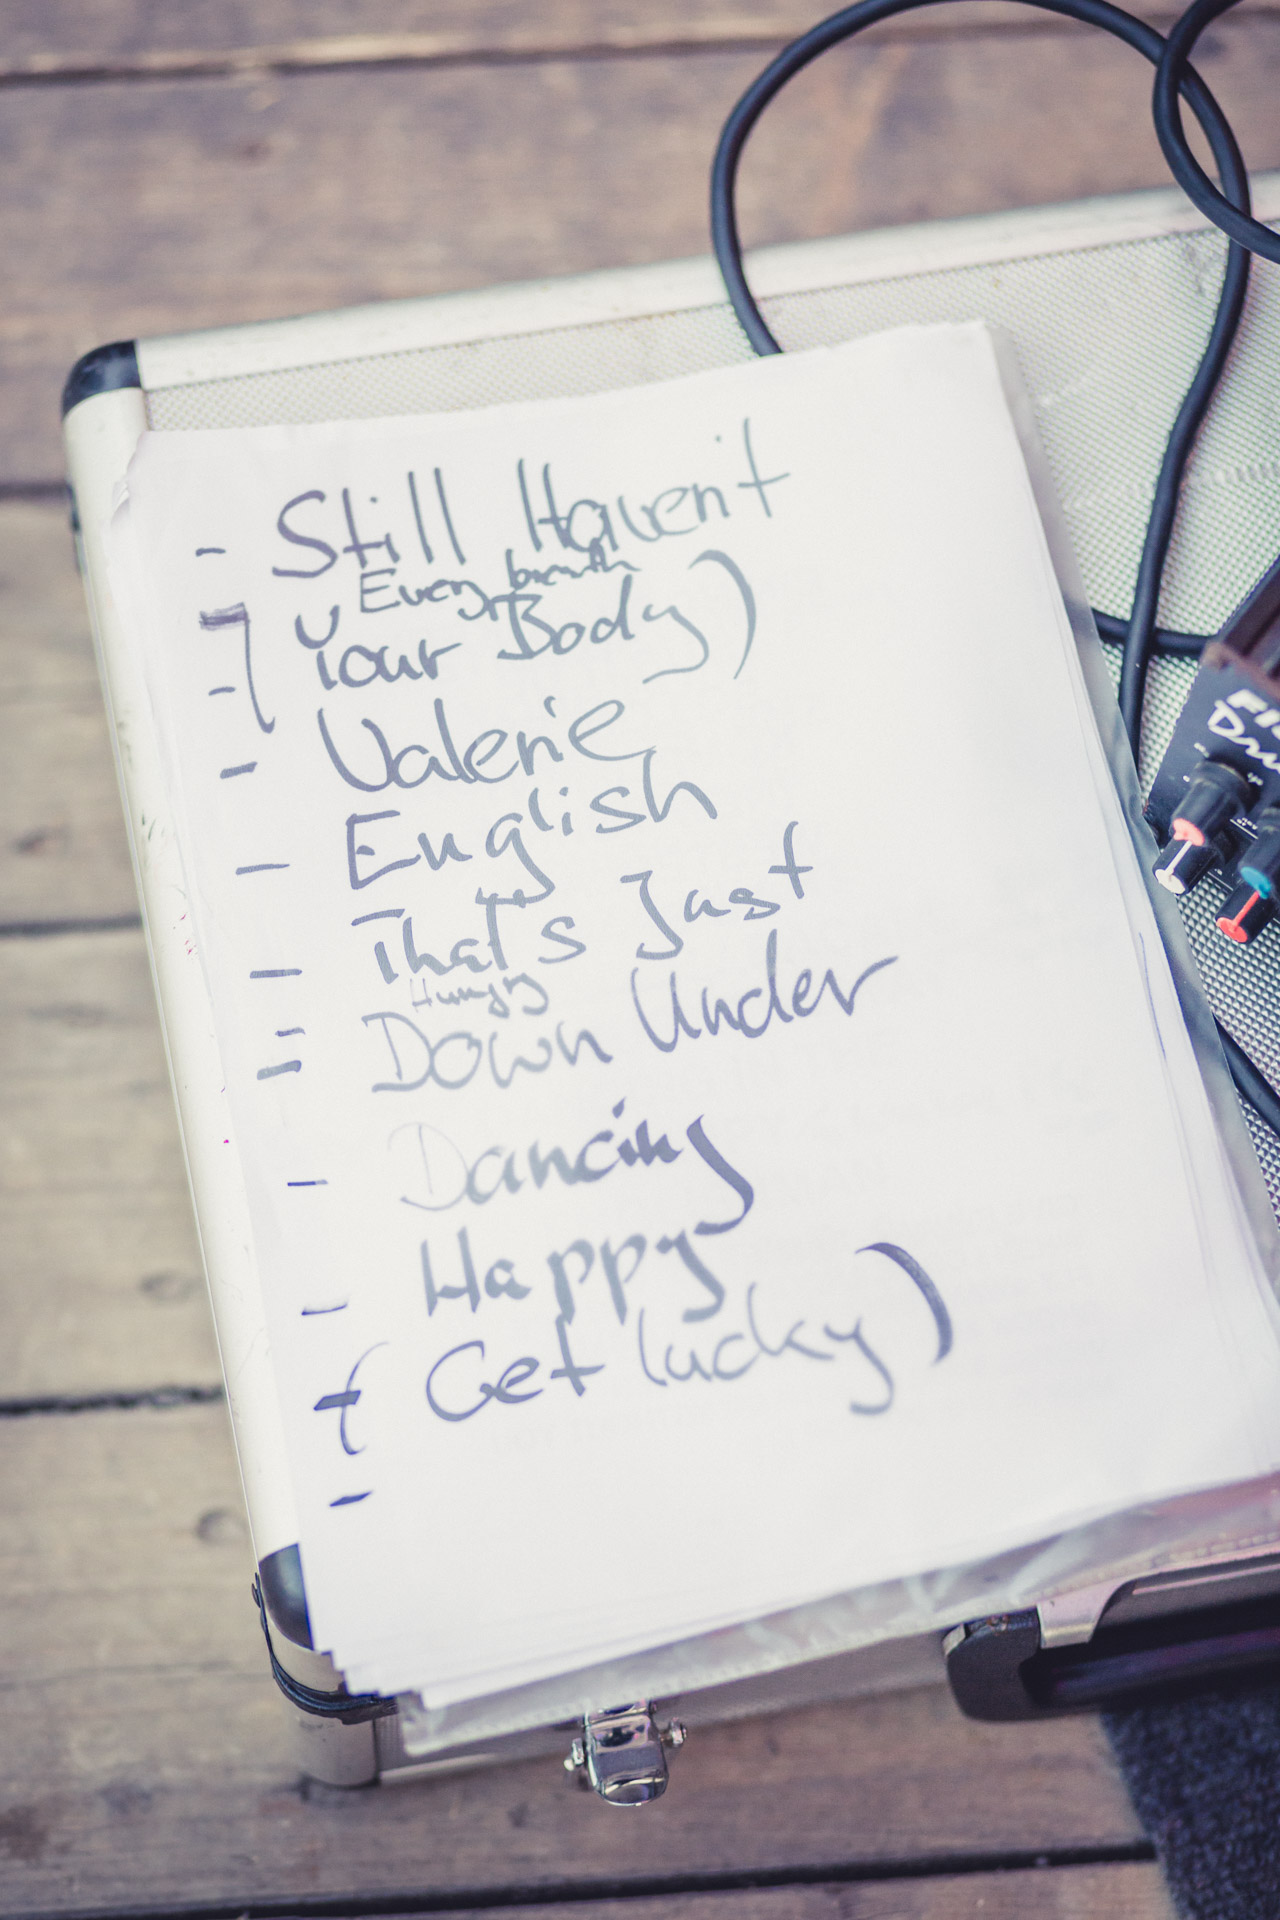 - Still Haven't
- Every breath
- Your Body)
- Valerie
- English
- That's Just
- Hungry
- Down Under
- Dancing
- Happy
- (Get lucky)
-